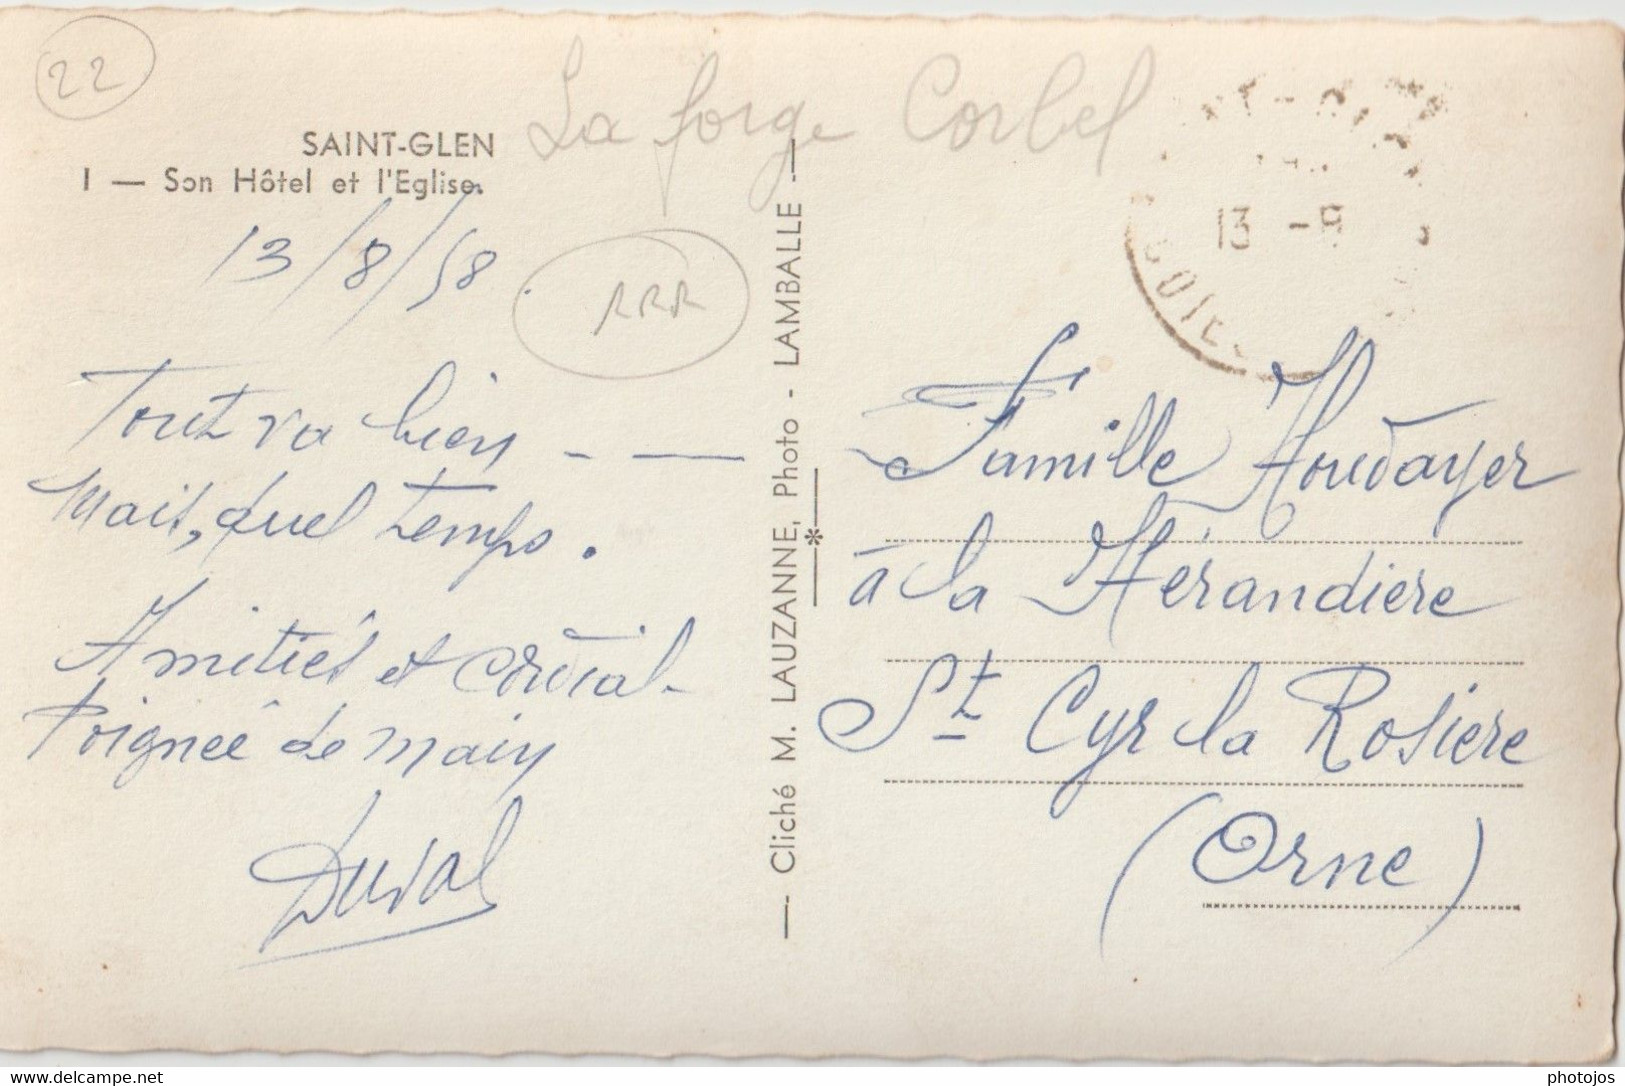 22
La forge Corbel
SAINT-GLEN
I — Son Hôtel et l'Eglise.
13/8/58.
RRR
Tout va bien - —
Mais, quel temps.
Amitiés et cordial-
Poignée de main
Duval
— Cliché M. LAUZANNE, Photo - LAMBALLE —
*
13 -8
Famille Houdayer
à la Hérandière
St Cyr la Rosière
(Orne)
www.delcampe.net
photojos